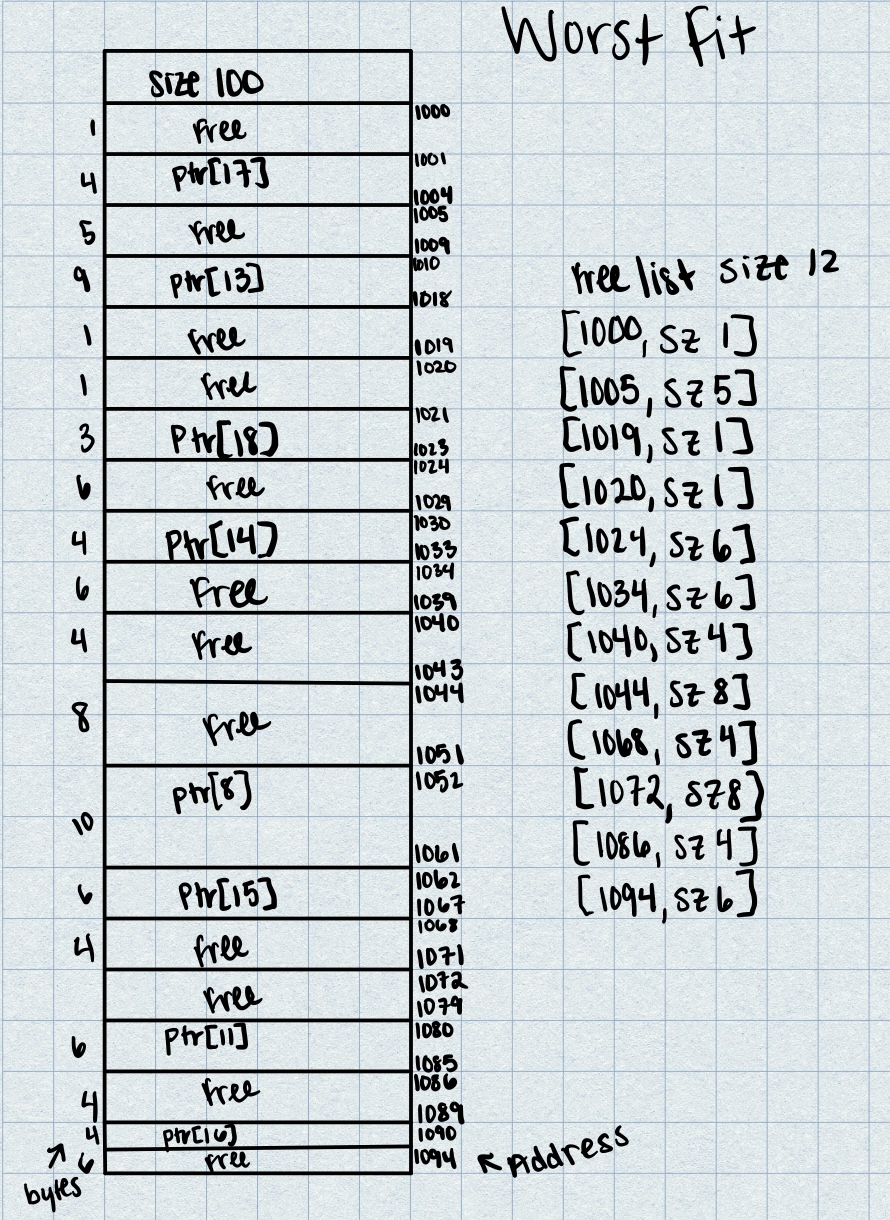 Worst Fit
size 100
1 Free 1000
4 ptr[17] 1001
1004
5 Free 1005
1009
9 ptr[13] 1010
1018
1 Free 1019
1 Free 1020
3 Ptr[18] 1021
1023
6 Free 1024
1029
4 Ptr[14] 1030
1033
6 Free 1034
1039
4 Free 1040
1043
8 Free 1044
1051
10 ptr[8] 1052
1061
6 Ptr[15] 1062
1067
4 Free 1068
1071
Free 1072
1079
6 Ptr[11] 1080
1085
4 Free 1086
1089
4 ptr[16] 1090
6 Free 1094
bytes
Address
free list size 12
[1000, sz 1]
[1005, sz 5]
[1019, sz 1]
[1020, sz 1]
[1024, sz 6]
[1034, sz 6]
[1040, sz 4]
[1044, sz 8]
[1068, sz 4]
[1072, sz 8]
[1086, sz 4]
[1094, sz 6]